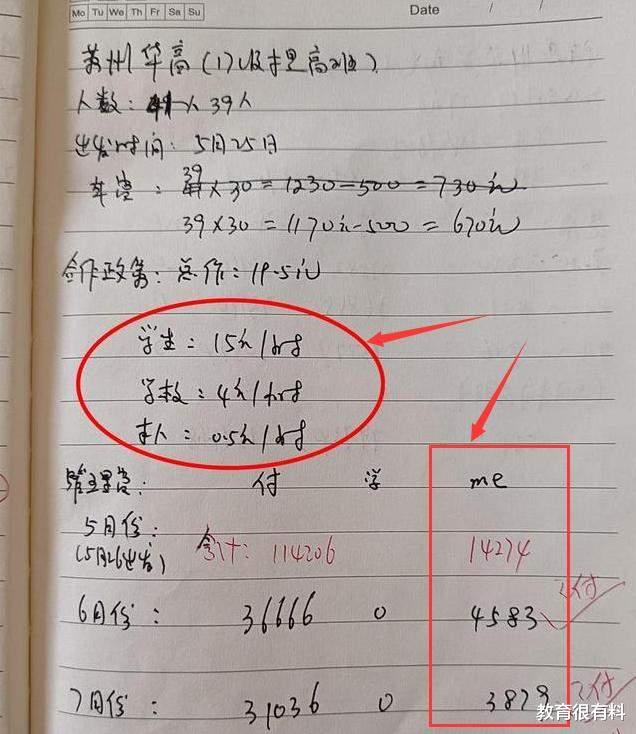 Mo Tu We Th Fr Sa Su
Date / /
苏州华高(17级护理高班)
人数: 41人 39人
出发时间: 5月25日
车费: 39 41×30=1230-500=730元
39×30=1170元-500=670元
合作政策: 总价: 19.5元
学生: 15元/时
学校: 4元/时
本人: 0.5元/时
管理费: 付 学 me
5月份: 合计: 114206 14274
(5月26出发)
6月份: 36666 0 4583 已付
7月份: 31036 0 3879 已付
教育很有料